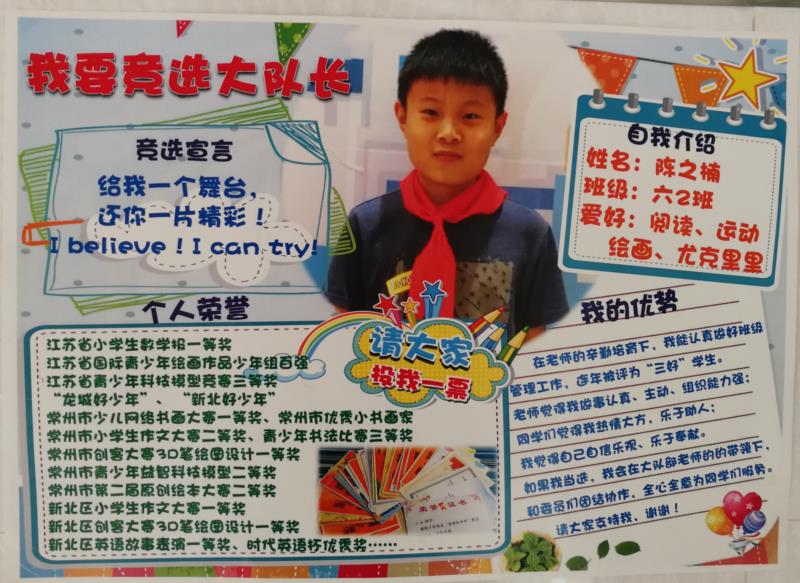 我要竞选大队长
竞选宣言
给我一个舞台，
还你一片精彩！
I believe！I can try!
自我介绍
姓名：陈之楠
班级：六2班
爱好：阅读、运动
绘画、尤克里里
个人荣誉
江苏省小学生数学报一等奖
江苏省国际青少年绘画作品少年组百强
江苏省青少年科技模型竞赛三等奖
“龙城好少年”、“新北好少年”
常州市少儿网络书画大赛一等奖、常州市优秀小书画家
常州市小学生作文大赛二等奖、青少年书法比赛三等奖
常州市创客大赛3D笔绘图设计一等奖
常州市青少年益智科技模型二等奖
常州市第二届原创绘本大赛二等奖
新北区小学生作文大赛一等奖
新北区创客大赛3D笔绘图设计一等奖
新北区英语故事表演一等奖、时代英语杯优秀奖……
请大家
投我一票
荣誉证书
我的优势
在老师的辛勤培育下，我能认真做好班级
管理工作，连年被评为“三好”学生。
老师觉得我做事认真、主动、组织能力强；
同学们觉得我热情大方，乐于助人；
我觉得自己自信乐观、乐于奉献。
如果我当选，我会在大队部老师的的带领下，
和委员们团结协作，全心全意为同学们服务。
请大家支持我，谢谢！